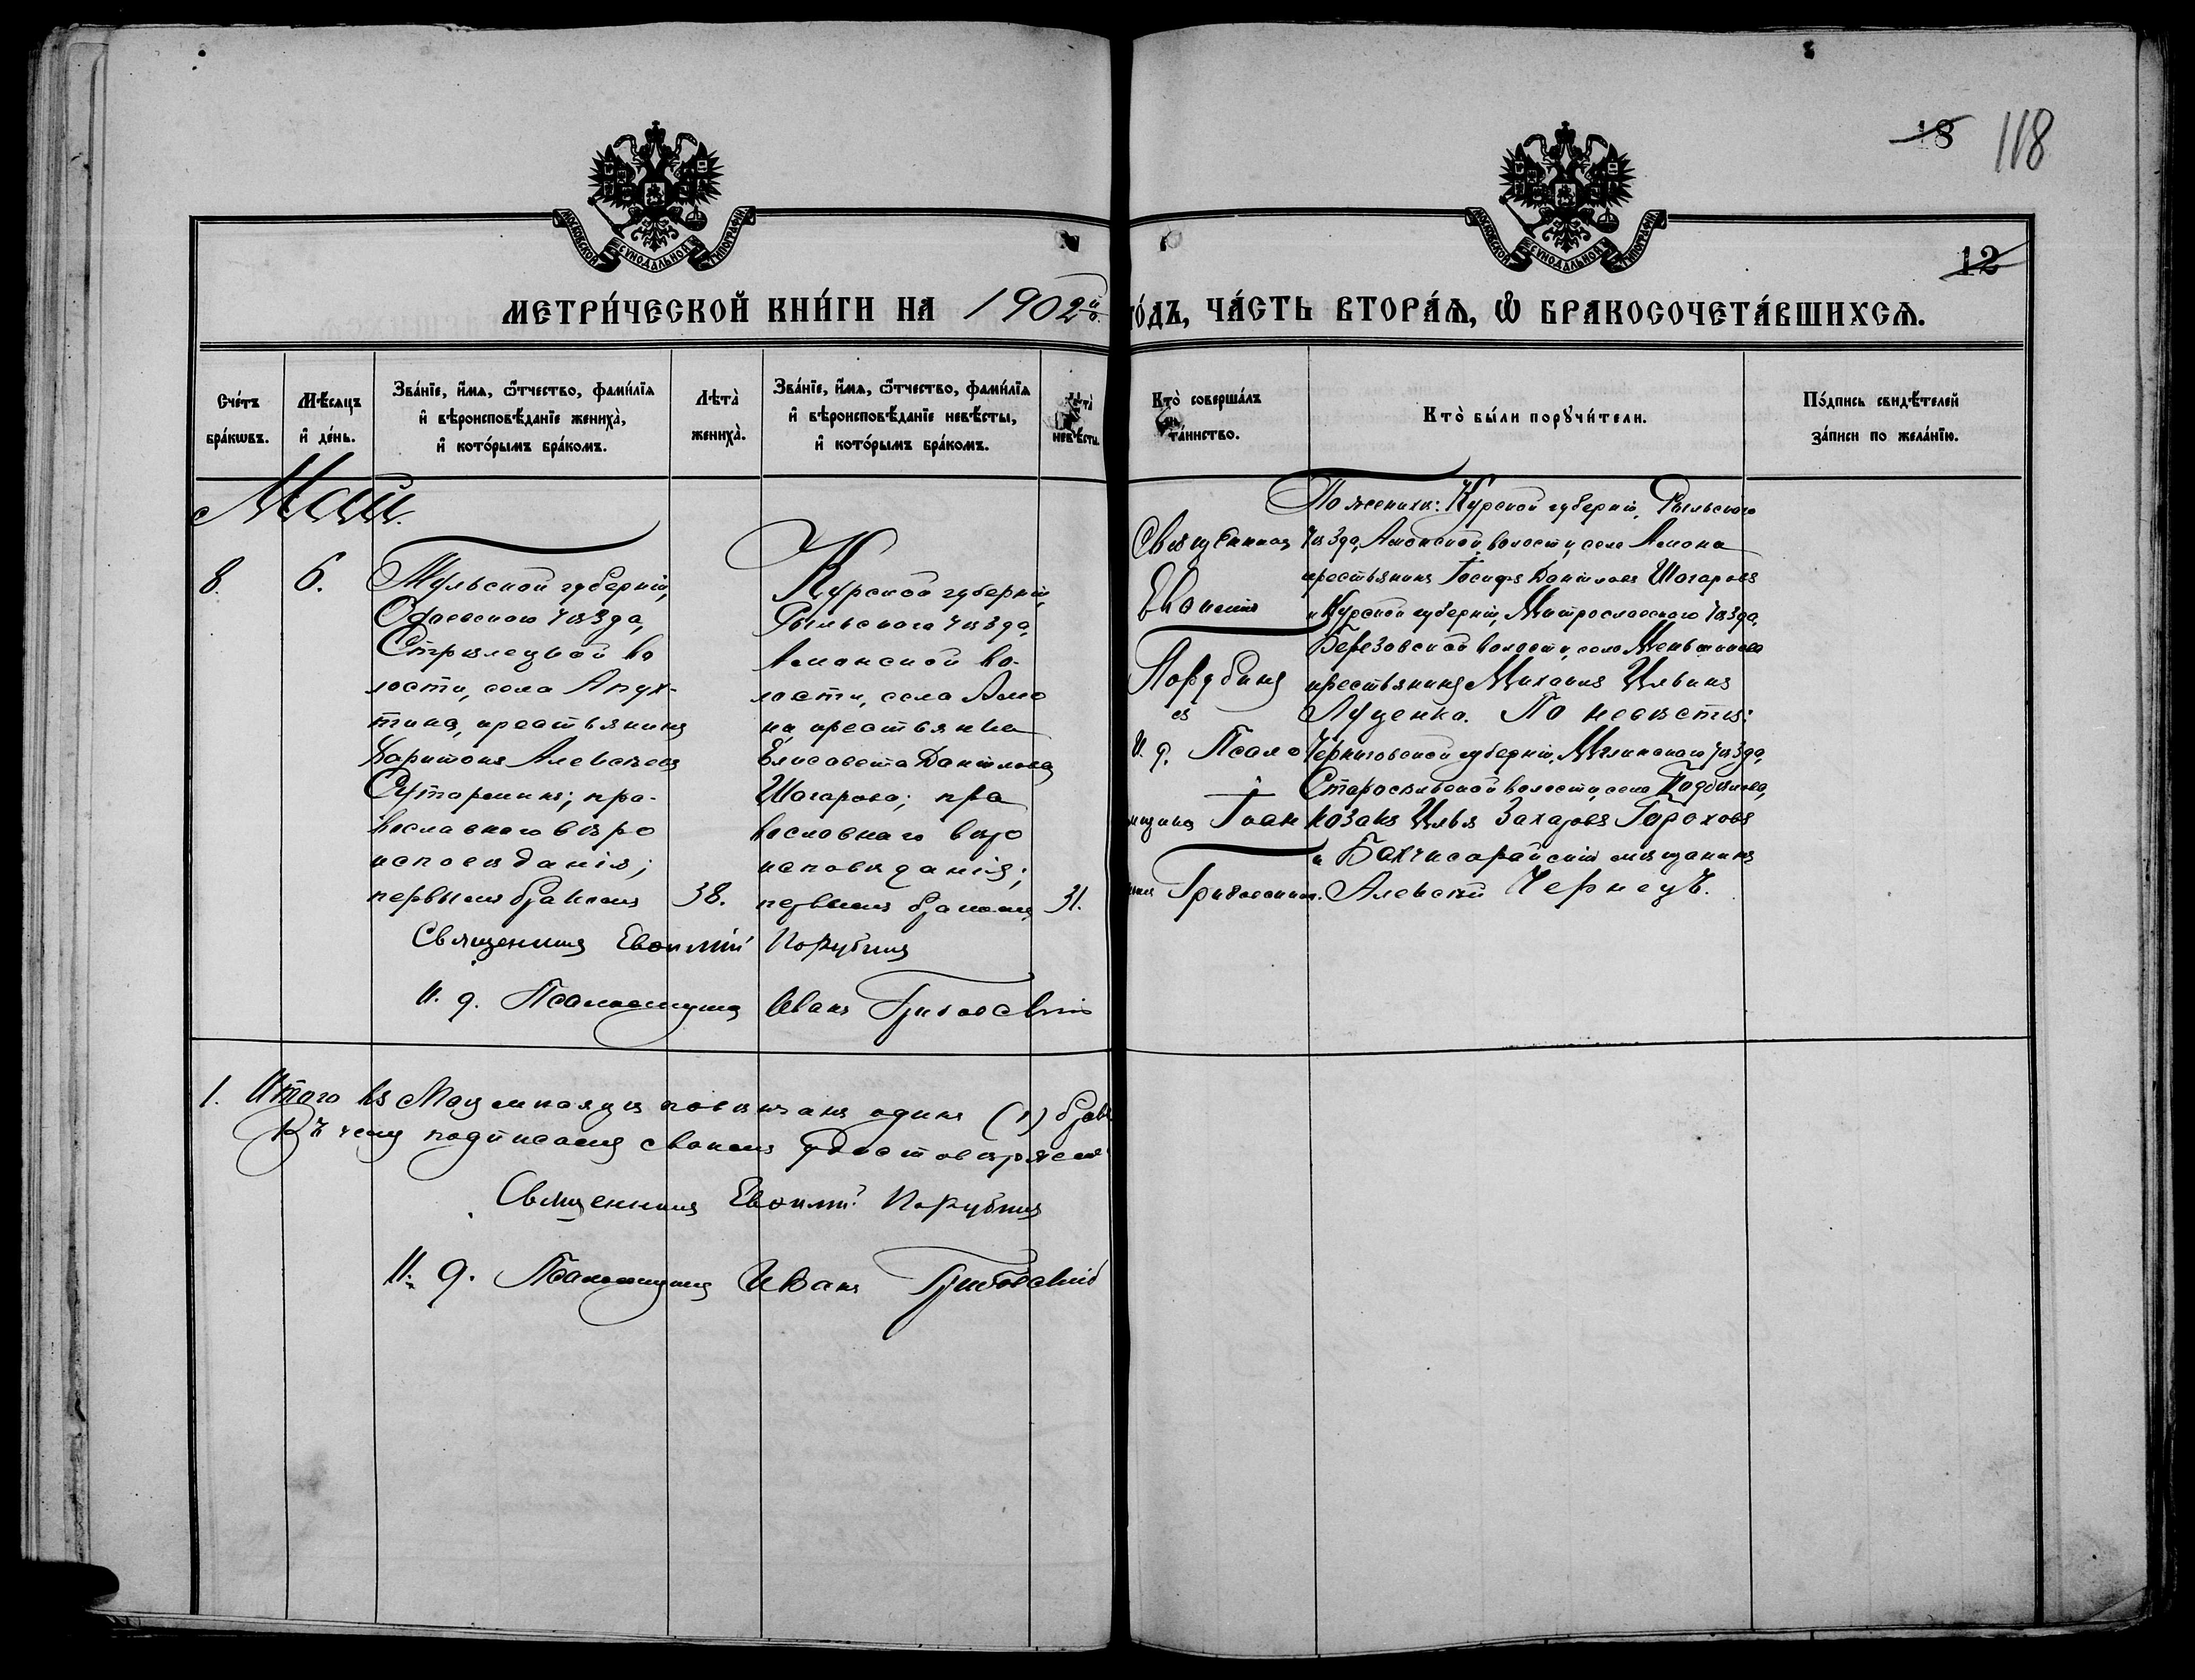 18 118
12
МОСКОВСКОЙ СѴНОДАЛЬНОЙ ТИПОГРАФІИ
МОСКОВСКОЙ СѴНОДАЛЬНОЙ ТИПОГРАФІИ
МЕТРИ́ЧЕСКОЙ КНИ́ГИ НА 1902й
го́дъ, ЧА́СТЬ ВТОРА́Ѧ, Ѽ БРАКОСОЧЕТА́ВШИХСѦ.
Сче́тъ
бра́кѡвъ.
Мѣ́сяцъ
и҆ де́нь.
Зва́нїе, и҆́мѧ, ѻ҆́тчество, фами́лїѧ
и҆ вѣроисповѣ́данїе жениха̀,
и҆ кото́рымъ бра́комъ.
Лѣта̀
жениха̀.
Зва́нїе, и҆́мѧ, ѻ҆́тчество, фами́лїѧ
и҆ вѣроисповѣ́данїе невѣ́сты,
и҆ кото́рымъ бра́комъ.
Лѣта̀
невѣ́сты.
Кто̀ соверша́лъ
та́инство.
Кто̀ бы́ли порꙋчи́тели.
По́дпись свидѣ́телей
за́писи по жела́нїю.
Май.
8.
6.
Тульской губерніи,
Одоевского уѣзда,
Стрѣлецкой во
лости, села Апух-
тина, крестьянинъ
Харитонъ Алексѣевъ
Сутормин; пра-
вославного вѣро
исповѣданія;
первымъ бракомъ
38.
Курской губерніи,
Рыльского уѣзда,
Амонской во-
лости, села Амо
на, крестьянка
Елисавета Данілова
Шагарова; пра
вославнаго вѣро
исповѣданія;
первымъ бракомъ
31.
Священникъ
Евѳимій
Порубинъ
съ
И. д. Псало
мщика Іоан
номъ Грибовскимъ.
По женихѣ: Курской губерніи, Рыльского
уѣзда, Амонской волости, села Амона
крестьянинъ Іосифъ Даніловъ Шагаровъ
и Курской губерніи, Митрославского уѣзда,
Березовской волости, села Меньшикова
крестьянинъ Михаилъ Ильинъ
Луценко. По невѣстѣ:
Черниговской губерніи, Мглинского уѣзда,
Старосельской волости, села
козакъ Илья Захаровъ Гороховъ
и Бахчисарайскій мѣщанинъ
Алексѣй Чернецъ.
Священникъ Евѳимій Порубинъ
И. д. Псаломщика Иванъ Грибовскій
1. Итого въ Маѣ мѣсяцѣ повѣнчанъ одинъ (1) бракъ
Къ чему подписомъ своимъ удостовѣряемъ
Священникъ Евѳимій Порубинъ
И. д. Псаломщика Иванъ Грибовскій